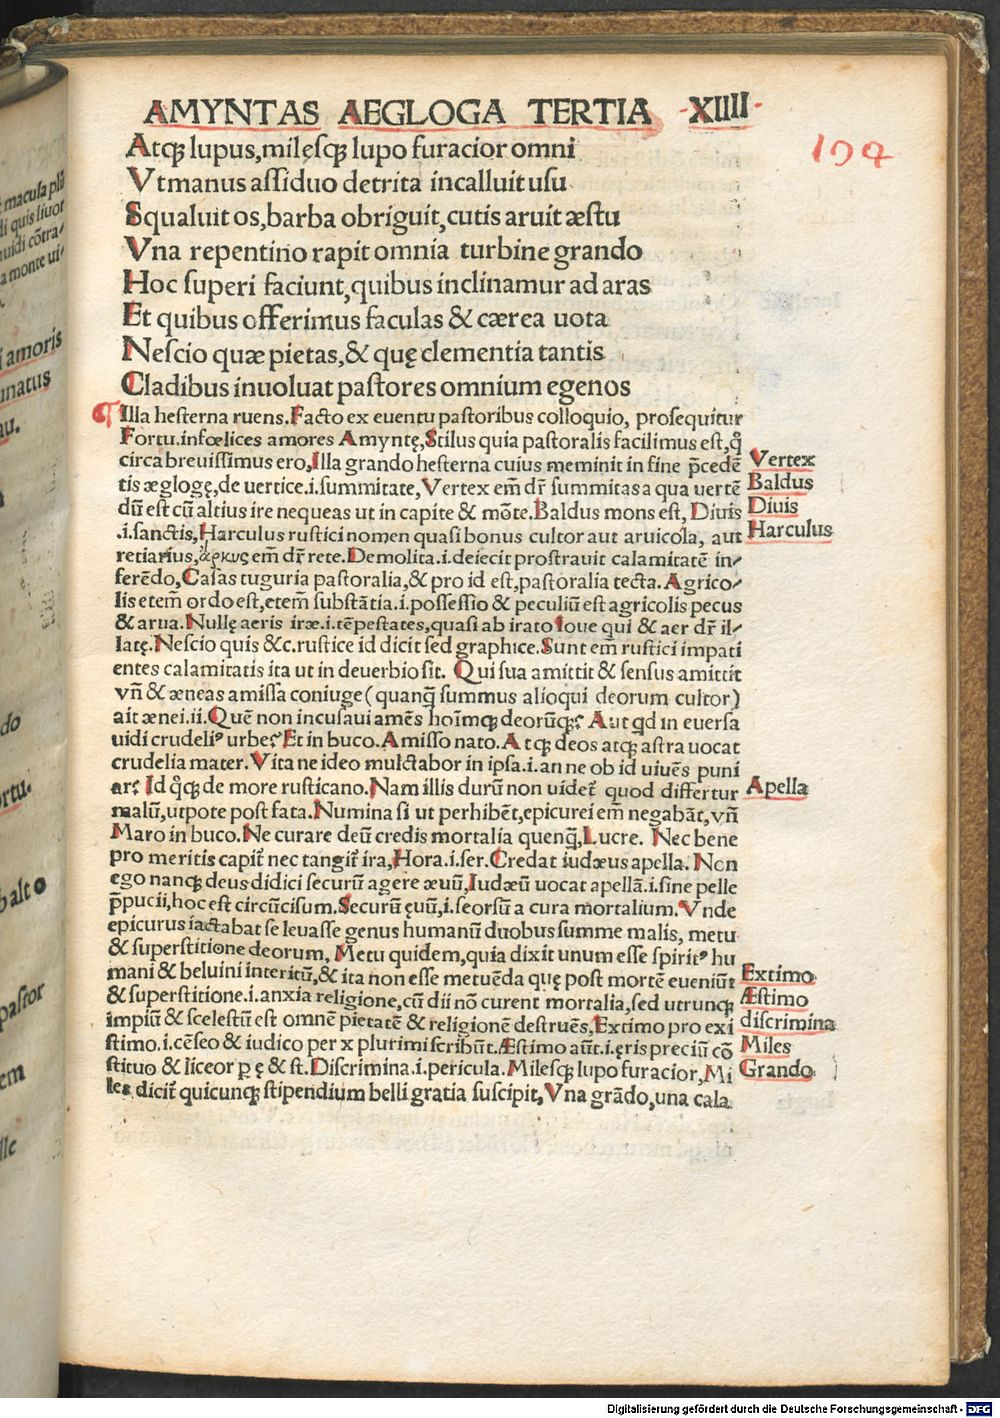 AMYNTAS AEGLOGA TERTIA XIIII
194
Atqꝫ lupus, milęsqꝫ lupo furacior omni
Vtmanus assiduo detrita incalluit usu
Squaluit os, barba obriguit, cutis aruit æstu
Vna repentino rapit omnia turbine grando
Hoc superi faciunt, quibus inclinamur ad aras
Et quibus offerimus faculas & cærea uota
Nescio quæ pietas, & quę clementia tantis
Cladibus inuoluat pastores omnium egenos
¶ Illa hesterna ruens. Facto ex euentu pastoribus colloquio, prosequitur
Fortu. infœlices amores Amyntę, Stilus quia pastoralis facilimus est, ꝙ̊
circa breuissimus ero, Illa grando hesterna cuius meminit in fine p̄cedē
tis æglogę, de uertice .i. summitate, Vertex em̄ dr̄ summitas a qua uertē
dū est cū altius ire nequeas ut in capite & mōte. Baldus mons est, Diuis
.i. sanctis, Harculus rustici nomen quasi bonus cultor aut aruicola, aut
retiarius, ἄρκυς em̄ dr̄ rete. Demolita .i. deiecit prostrauit calamitatē in-
ferēdo, Casas tuguria pastoralia, & pro id est, pastoralia tecta. Agrico-
lis etem̄ ordo est, etem̄ substātia .i. possessio & peculiū est agricolis pecus
& arua. Nullę aeris iræ .i. tēpestates, quasi ab irato Ioue qui & aer dr̄ il-
latę. Nescio quis &c. rustice id dicit sed graphice. Sunt em̄ rustici impati
entes calamitatis ita ut in deuerbio sit. Qui sua amittit & sensus amittit
vn̄ & æneas amissa coniuge (quanq̄ summus alioqui deorum cultor)
ait ænei. ii. Quē non incusaui amēs hoīmqꝫ deorūqꝫ? Aut qd in euersa
uidi crudeliꝰ urbe? Et in buco. Amisso nato. Atqꝫ deos atqꝫ astra uocat
crudelia mater. Vita ne ideo mulctabor in ipsa .i. an ne ob id uiuēs puni
ar? Id ꝙ̊qꝫ de more rusticano. Nam illis durū non uidet̄ quod differtur
malū, utpote post fata. Numina si ut perhibēt, epicurei em̄ negabāt, vn̄
Maro in buco. Ne curare deū credis mortalia quenq̄, Lucre. Nec bene
pro meritis capit̄ nec tangit̄ ira, Hora. i. ser. Credat iudæus apella. Non
ego nanqꝫ deus didici securū agere æuū, Iudæū uocat apellā .i. sine pelle
p̄pucii, hoc est circūcisum. Securū ęuū, .i. seorsū a cura mortalium. Vnde
epicurus iactabat se leuasse genus humanū duobus summe malis, metu
& superstitione deorum, Metu quidem, quia dixit unum esse spiritꝰ hu
mani & beluini interitū, & ita non esse metuēda quę post mortē eueniūt
& superstitione .i. anxia religione, cū dii nō curent mortalia, sed utrunqꝫ
impiū & scelestū est omnē pietatē & religionē destruēs, Extimo pro exi
stimo .i. cēseo & iudico per x plurimi scribūt. Æstimo aūt .i. ęris preciū cō
stituo & liceor p ę & st. Discrimina .i. pericula. Milesqꝫ lupo furacior, Mi
les dicit̄ quicunqꝫ stipendium belli gratia suscipit, Vna grādo, una cala
Vertex
Baldus
Diuis
Harculus
Apella
Extimo
Æstimo
discrimina
Miles
Grando
macula
di quis liuor
uidi cōtra-
a monte ui-
i amoris
unatus
au.
do
rtu.
b alto
pastor
em
lle
Digitalisierung gefördert durch die Deutsche Forschungsgemeinschaft - DFG